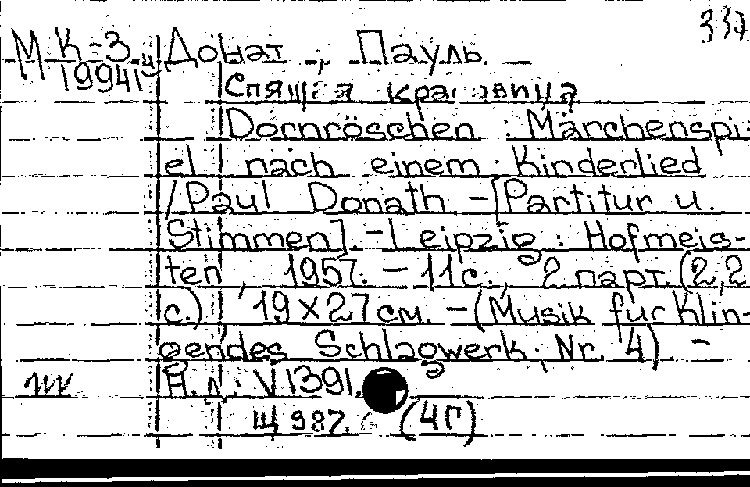 337
МК-3 Донат, Пауль.
19941
Спящая красавица
Dornröschen : Märchenspi-
el nach einem Kinderlied
/Paul Donath -[Partitur u.
Stimmen]. - Leipzig : Hofmeis-
ten, 1957. - 11 с., 2 парт. (2,2
с.) ; 19×27 см. - (Musik für Klin-
gendes Schlagwerk ; Nr 4) -
Н. д. V 1391.
Щ 987. (4Г)